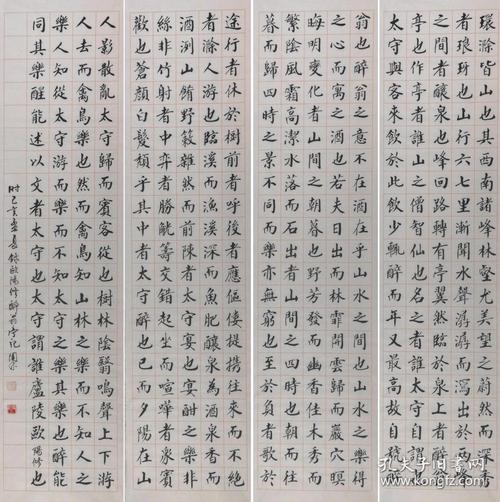 環滁皆山也其西南諸峰林壑尤美望之蔚然而深秀
者琅玡也山行六七里漸聞水聲潺潺而瀉出於兩峰
之間者釀泉也峰回路轉有亭翼然臨於泉上者醉翁
亭也作亭者誰山之僧智仙也名之者誰太守自謂也
太守與客來飲於此飲少輒醉而年又最高故自號曰醉
翁也醉翁之意不在酒在乎山水之間也山水之樂得
之心而寓之酒也若夫日出而林霏開雲歸而巖穴暝
晦明變化者山間之朝暮也野芳發而幽香佳木秀而
繁陰風霜高潔水落而石出者山間之四時也朝而往
暮而歸四時之景不同而樂亦無窮也至於負者歌於
途行者休於樹前者呼後者應傴僂提攜往來而不絕
者滁人游也臨溪而漁溪深而魚肥釀泉為酒泉香而
酒洌山餚野蔌雜然而前陳者太守宴也宴酣之樂非
絲非竹射者中弈者勝觥籌交錯起坐而喧嘩者眾賓
歡也蒼顏白髮頹乎其中者太守醉也已而夕陽在山
人影散亂太守歸而賓客從也樹林陰翳鳴聲上下游
人去而禽鳥樂也然而禽鳥知山林之樂而不知人之
樂人知從太守游而樂而不知太守之樂其樂也醉能
同其樂醒能述以文者太守也太守謂誰廬陵歐陽修也
時己亥孟春錄歐陽修醉翁亭記
孔夫子旧书网